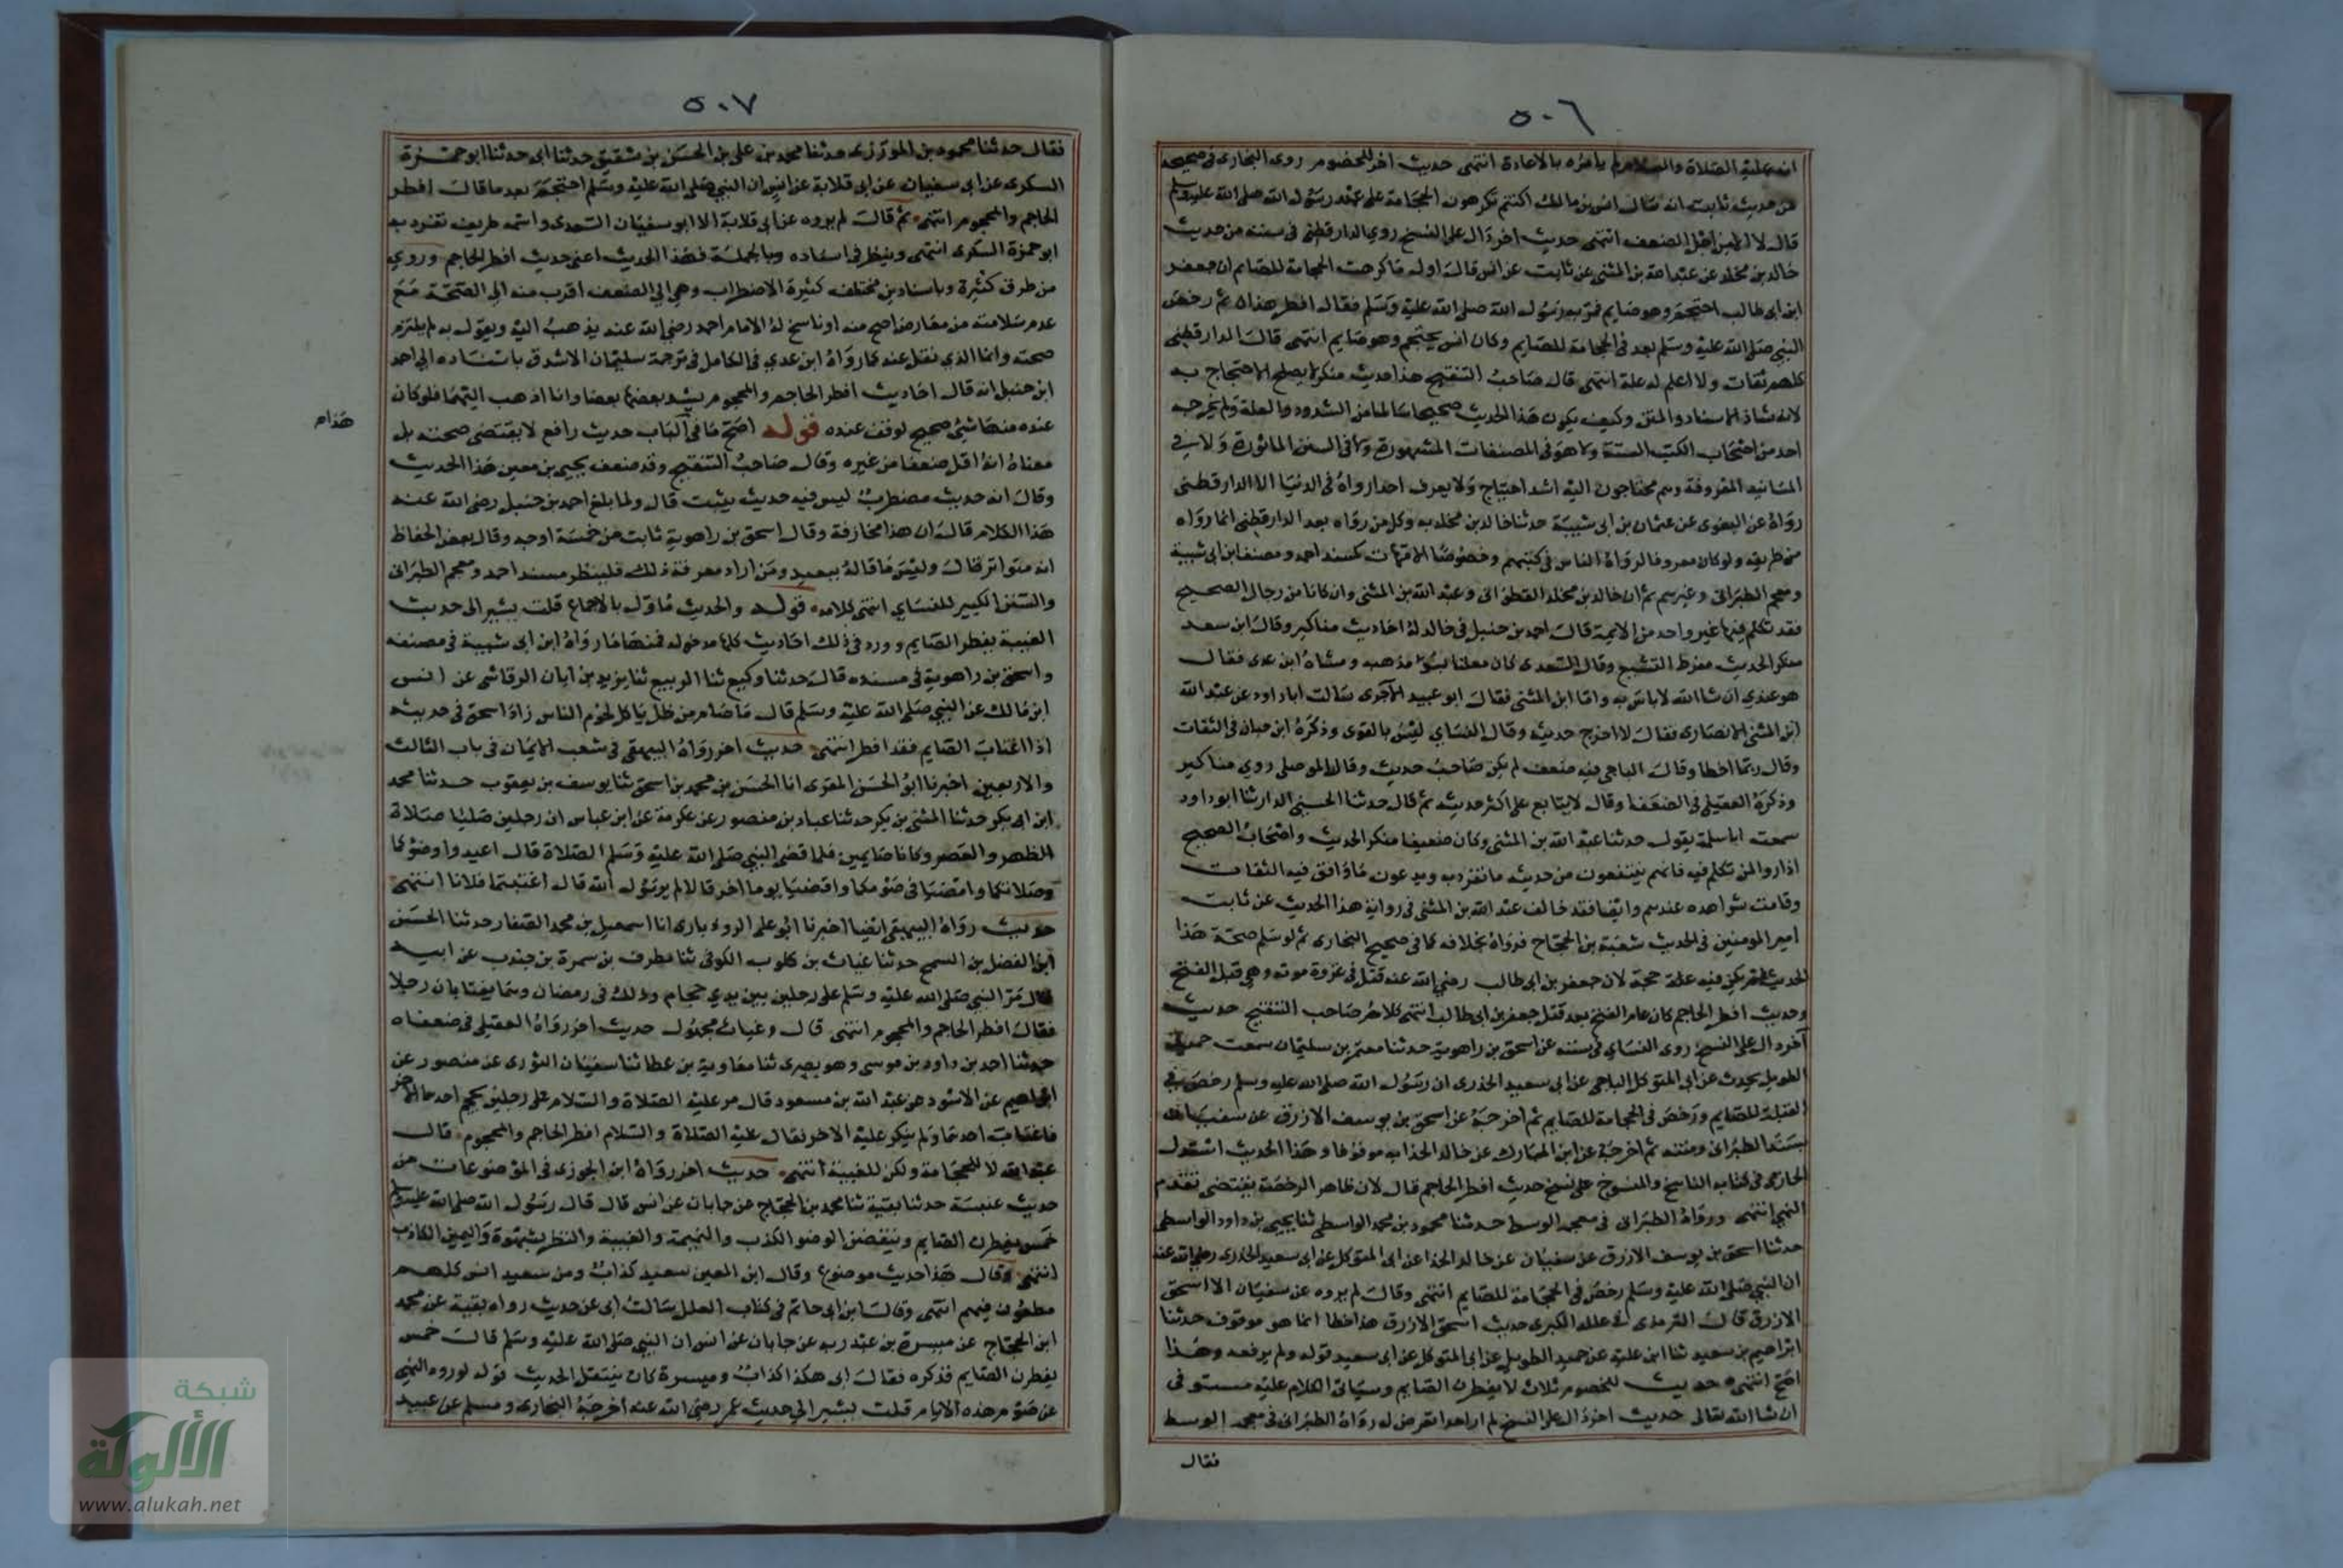 ٥٠٦
انه عليه الصلاة والسلام لم يأمره بالاعادة انتهى حديث اخر للخصوم روى البخارى فى صحيحه
من حديث ثابت انه سال انس بن مالك اكنتم تكرهون الحجامة على عهد رسول الله صلى الله عليه وسلم
قال لا الا من اجل الضعف انتهى حديث اخر دال على النسخ روي الدارقطنى فى سننه من حديث
خالد بن مخلد عن عبد الله بن المثنى عن ثابت عن انس قال اول ما كرهت الحجامة للصايم ان جعفر
ابن ابى طالب احتجم وهو صايم فمر به رسول الله صلى الله عليه وسلم فقال افطر هذان ثم رخص
النبي صلى الله عليه وسلم بعد فى الحجامة للصايم وكان انس يحتجم وهو صايم انتهى قال الدارقطنى
كلهم ثقات ولا اعلم له علة انتهى قال صاحب التنقيح هذا حديث منكر لا يصلح الاحتجاج به
لانه شاذ الاسناد والمتن وكيف يكون هذا الحديث صحيحا سالما من الشذوذ والعلة ولم يخرجه
احد من اصحاب الكتب الستة ولا هو فى المصنفات المشهورة ولا فى السنن الماثورة ولا فى
المسانيد المعروفة وهم محتاجون اليه اشد احتياج ولا يعرف احد رواه فى الدنيا الا الدارقطنى
رواه عن البغوى عن عثمان بن ابى شيبة حدثنا خالد بن مخلد به وكل من رواه بعد الدارقطنى انما رواه
من طريقه ولو كان معروفا لرواه الناس فى كتبهم وخصوصا الامهات كمسند احمد ومصنف ابن ابى شيبة
ومعجم الطبرانى وغيرهم ثم ان خالد بن مخلد القطوانى وعبد الله بن المثنى وان كانا من رجال الصحيح
فقد تكلم فيهما غير واحد من الايمة قال احمد بن حنبل فى خالد له احاديث مناكير وقال ابن سعد
منكر الحديث مفرط التشيع وقال السعدى كان معلنا بسوء مذهبه ومشاه ابن عدى فقال
هو عندي ان شا الله لا باس به واما ابن المثنى فقال ابو عبيد الآجرى سالت ابا داود عن عبد الله
ابن المثنى الانصارى فقال لا اخرج حديثه وقال النساى ليس بالقوى وذكره ابن حبان فى الثقات
وقال ربما اخطا وقال الساجى فيه ضعف لم يكن صاحب حديث وقال الموصلى روي مناكير
وذكره العقيلى فى الضعفا وقال لا يتابع على اكثر حديثه ثم قال حدثنا الحسين الدارثنا ابو داود
سمعت ابا سلمة يقول حدثنا عبد الله بن المثنى وكان ضعيفا منكر الحديث واصحاب الصحيح
اذا رووا لمن تكلم فيه فانهم ينتقون من حديثه ما تفرد به ويدعون ما وافق فيه الثقات
وقامت شواهده عندهم وايضا فقد خالف عبد الله بن المثنى فى رواية هذا الحديث عن ثابت
امير المومنين فى الحديث شعبة بن الحجاج فرواه بخلافه كما فى صحيح البخارى ثم لو سلم صحة هذا
الحديث لم يكن فيه حجة لان جعفر بن ابى طالب رضي الله عنه قتل فى غزوة موته وهى قبل الفتح
وحديث افطر الحاجم كان عام الفتح بعد قتل جعفر بن ابى طالب انتهى كلام صاحب التنقيح حديث
آخر دال على النسخ روى النساي فى سننه عن اسحق بن راهوية حدثنا معتمر بن سليمان سمعت حميد
الطويل يحدث عن ابى المتوكل الناجى عن ابى سعيد الخدرى ان رسول الله صلى الله عليه وسلم رخص فى
القبلة للصايم ورخص فى الحجامة للصايم ثم اخرجه عن اسحق بن يوسف الازرق عن سفيان
بسند الطبرانى ومتنه ثم اخرجه عن ابن المبارك عن خالد الحذاء به موقوفا وهذا الحديث استدل
الحازمى فى كتابه الناسخ والمنسوخ على نسخ حديث افطر الحاجم قال لان ظاهر الرخصة يقتضى تقدم
النهي انتهى ورواه الطبرانى فى معجمه الوسط حدثنا محمود بن محمد الواسطى ثنا يحيى بن داود الواسطى
حدثنا اسحق بن يوسف الازرق عن سفيان عن خالد الحذا عن ابى المتوكل عن ابى سعيد الخدرى رضي الله عنه
ان النبي صلى الله عليه وسلم رخص فى الحجامة للصايم انتهى وقال لم يروه عن سفيان الا اسحق
الازرق قال الترمذى فى علله الكبرى حديث اسحق الازرق هذا خطا انما هو موقوف حدثنا
ابراهيم بن سعيد ثنا ابن علية عن حميد الطويل عن ابى المتوكل عن ابى سعيد قوله ولم يرفعه وهذا
اصح انتهى حديث للخصوم ثلاث لا يفطرن الصايم وسياتى الكلام عليه مستوفى
ان شا الله تعالى حديث اخر دال على النسخ لم ار احدا تعرض له رواه الطبرانى فى معجمه الوسط
فقال
٥٠٧
فقال حدثنا محمود بن المروزى حدثنا محمد بن على بن الحسن بن شقيق حدثنا ابى حدثنا ابو حمزة
السكرى عن ابى سفيان عن ابى قلابة عن انس ان النبي صلى الله عليه وسلم احتجم بعد ما قال افطر
الحاجم والمحجوم انتهى ثم قال لم يروه عن ابى قلابة الا ابو سفيان السعدى واسمه طريف تفرد به
ابو حمزة السكرى انتهى وينظر فى اسناده وبالجملة فهذا الحديث اعنى حديث افطر الحاجم وروي
من طرق كثيرة وباسانيد مختلفه كثيرة الاضطراب وهى الى الضعف اقرب منه الى الصحة مع
عدم سلامته من معارض اصح منه او ناسخ له الامام احمد رضي الله عنه يذهب اليه ويقول به لم يلتزم
صحته وانما الذي نقل عنه كما رواه ابن عدي فى الكامل فى ترجمة سليمان الاشدق باسناده الى احمد
ابن حنبل انه قال احاديث افطر الحاجم والمحجوم يشد بعضها بعضا وانا اذهب اليها فلو كان
عنده منها شئ صحيح لوقف عنده قوله اصح ما فى الباب حديث رافع لا يقتضى صحته بل
هذا م
معناه انه اقل ضعفا من غيره وقال صاحب التنقيح وقد ضعف يحيى بن معين هذا الحديث
وقال انه حديث مضطرب ليس فيه حديث يثبت قال ولما بلغ احمد بن حنبل رضى الله عنه
هذا الكلام قال ان هذا مجازفة وقال اسحق بن راهوية ثابت من خمسة اوجه وقال بعض الحفاظ
انه متواتر قال وليس ما قاله ببعيد ومن اراد معرفة ذلك فلينظر مسند احمد ومعجم الطبرانى
والسنن الكبير للنساي انتهى كلامه قوله والحديث ماول بالاجماع قلت يشير الى حديث
الغيبة يفطر الصايم وورد فى ذلك احاديث كلها مدخوله فمنها ما رواه ابن ابى شيبة فى مصنفه
واسحق بن راهوية فى مسنده قال حدثنا وكيع ثنا الربيع ثنا يزيد بن ابان الرقاشى عن انس
ابن مالك عن النبي صلى الله عليه وسلم قال ما صام من ظل ياكل لحوم الناس زاد اسحق فى حديثه
اذا اغتاب الصايم فقد افطر انتهى حديث اخر رواه البيهقى فى شعب الايمان فى باب الثالث
والاربعين اخبرنا ابو الحسن المقرى انا الحسن بن محمد بن اسحق ثنا يوسف بن يعقوب حدثنا محمد
ابن ابى بكر حدثنا المثنى بن بكر حدثنا عباد بن منصور عن عكرمة عن ابن عباس ان رجلين صليا صلاة
الظهر والعصر وكانا صايمين فلما قضى النبي صلى الله عليه وسلم الصلاة قال اعيدوا وضوكما
وصلاتكما وامضيا فى صومكما واقضيا يوما اخر قالا لم يرسول الله قال اغتبتما فلانا انتهى
حديث رواه البيهقى ايضا اخبرنا ابو على الروذبارى انا اسمعيل بن محمد الصفار حدثنا الحسن
ابن الفضل بن السمح حدثنا غياث بن كلوب الكوفى ثنا مطرف بن سمرة بن جندب عن ابيه
قال مر النبي صلى الله عليه وسلم على رجلين بين يدي حجام وذلك فى رمضان وهما يغتابان رجلا
فقال افطر الحاجم والمحجوم انتهى قال وغياث مجهول حديث اخر رواه العقيلى فى ضعفاه
حدثنا احمد بن داود بن موسى وهو بصرى ثنا معاوية بن عطا ثنا سفيان الثورى عن منصور عن
ابراهيم عن الاسود عن عبد الله بن مسعود قال مر عليه الصلاة والسلام على رجلين يحجم احدهما الاخر
فاغتاب احدهما ولم ينكر عليه الاخر فقال عليه الصلاة والسلام افطر الحاجم والمحجوم قال
عبد الله لا للحجامة ولكن للغيبة انتهى حديث اخر رواه ابن الجوزى فى الموضوعات من
حديث عنبسة حدثنا بقية ثنا محمد بن الحجاج عن جابان عن انس قال قال رسول الله صلى الله عليه وسلم
خمس يفطرن الصايم وينقضن الوضو الكذب والنميمة والغيبة والنظر بشهوة واليمين الكاذب
انتهى وقال هذا حديث موضوع وقال ابن المعين سعيد كذاب ومن سعيد انس كلهم
مطعون فيهم انتهى وقال ابن ابى حاتم فى كتاب العلل سالت ابى عن حديث رواه بقية عن محمد
ابن الحجاج عن ميسرة بن عبد ربه عن جابان عن انس ان النبي صلى الله عليه وسلم قال خمس
يفطرن الصايم فذكره فقال ابى هكذا كذاب وميسرة كان يفتعل الحديث قوله لوروه النهي
عن صوم هذه الايام قلت يشير الى حديث عمر رضى الله عنه اخرجه البخارى ومسلم عن عبيد
شبكة
الألوكة
www.alukah.net